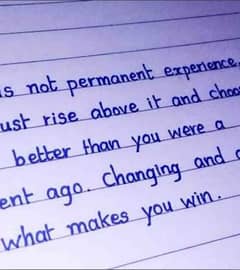 is not permanent experience.
ust rise above it and choo
better than you were a
ent ago. Changing and
what makes you win.